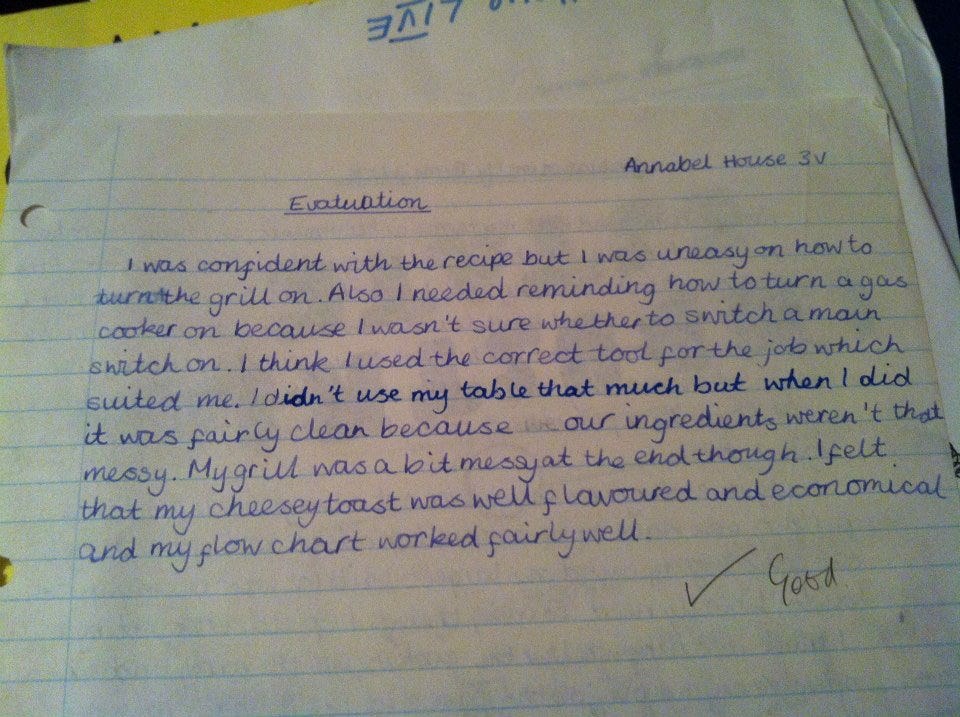 LIVE
Annabel House 3V
Evaluation
I was confident with the recipe but I was uneasy on how to
turn the grill on. Also I needed reminding how to turn a gas
cooker on because I wasn't sure whether to switch a main
switch on. I think I used the correct tool for the job which
suited me. I didn't use my table that much but when I did
it was fairly clean because our ingredients weren't that
messy. My grill was a bit messy at the end though. I felt
that my cheesey toast was well flavoured and economical
and my flow chart worked fairly well.
✓ Good